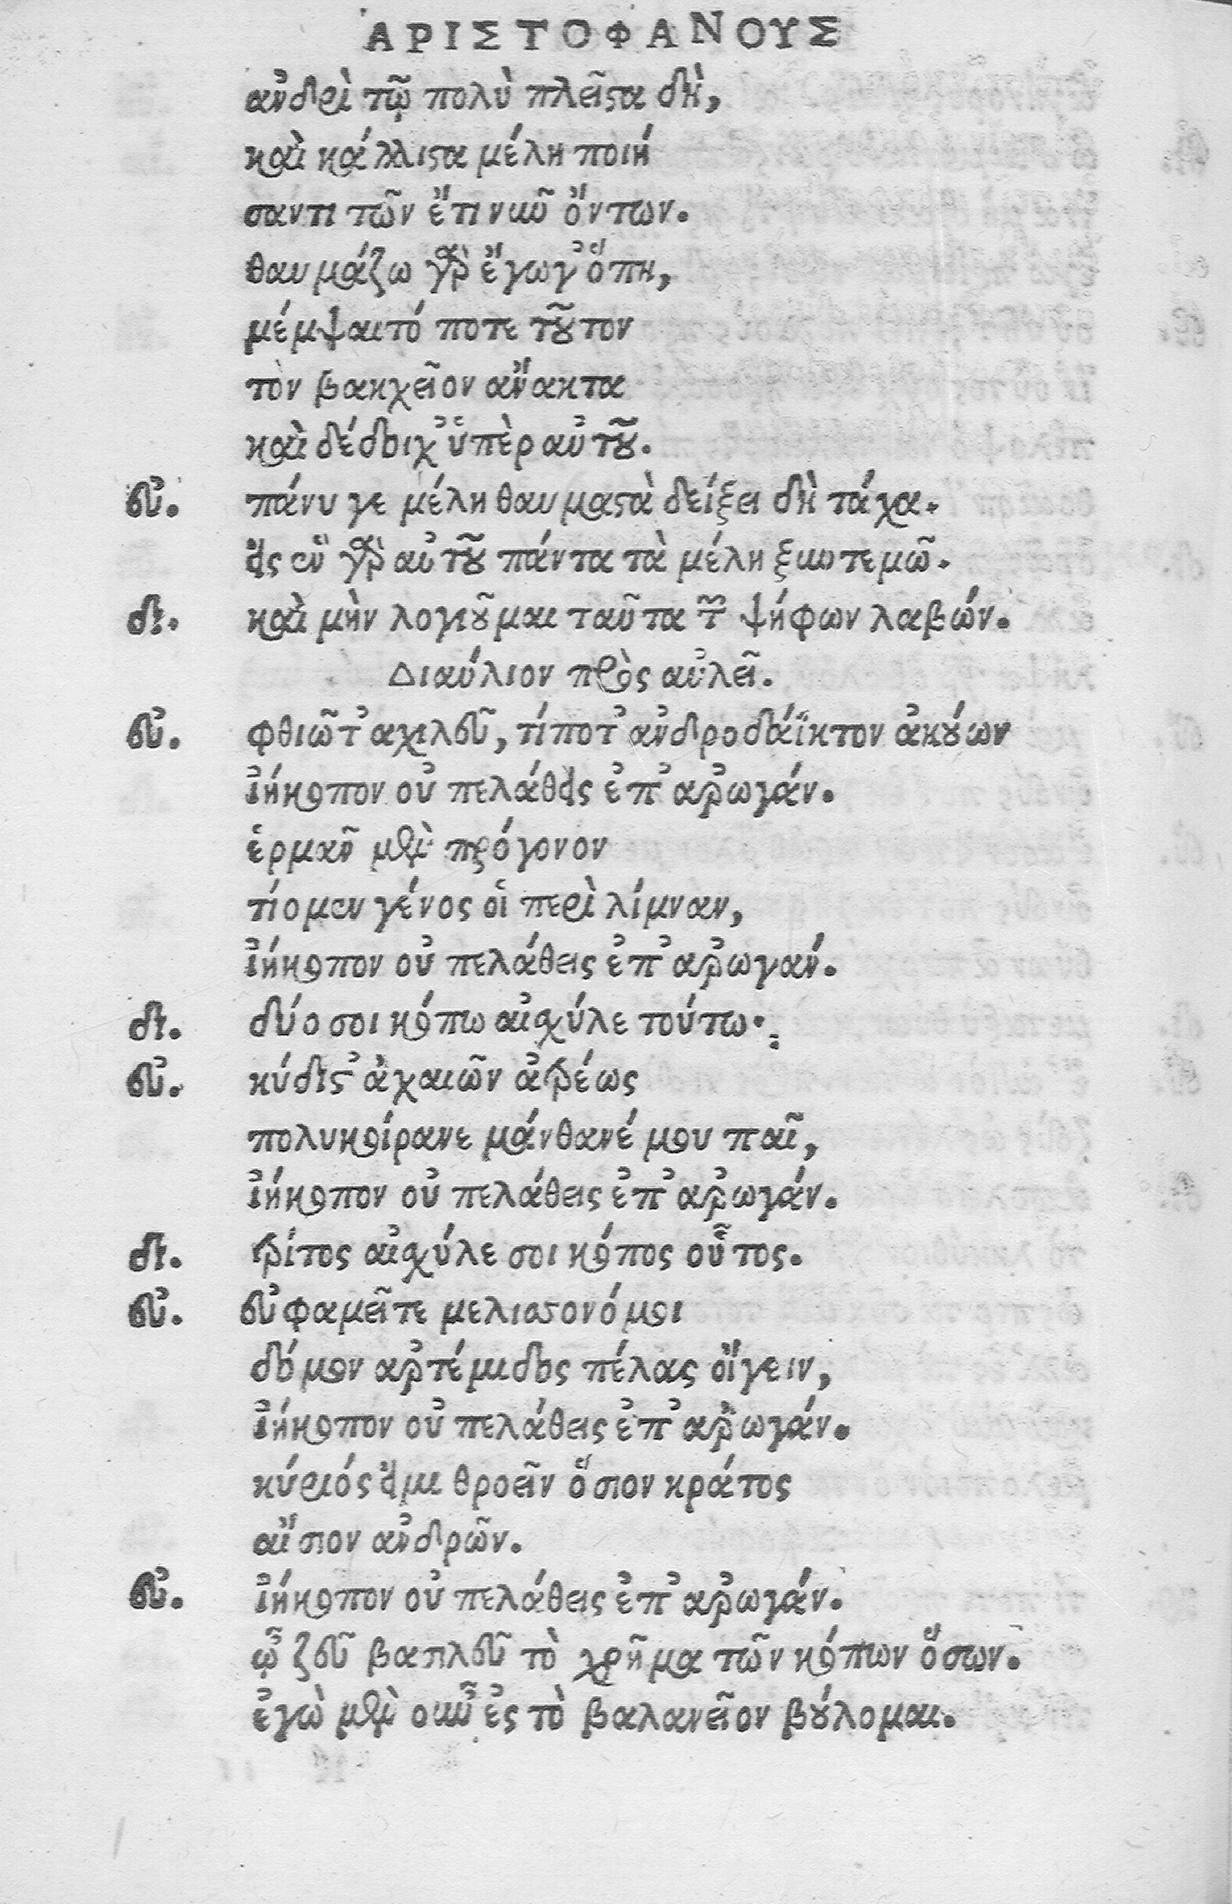 ἈΡΙΣΤΟΦΑΝΟΥΣ
ἀνδρὶ τῷ πολὺ πλεῖστα δὴ,
καὶ κάλλιστα μέλη ποιή
σαντι τῶν ἔτι νῦν ὄντων.
θαυμάζω γὰρ ἔγωγ' ὅπη,
μέμψαιτό ποτε τοῦτον
τὸν βακχεῖον ἄνακτα
καὶ δέδοιχ' ὑπὲρ αὐτοῦ.
εὐ. πάνυ γε μέλη θαυμαστὰ δείξει δὴ τάχα.
εἰς ἓν γὰρ αὐτοῦ πάντα τὰ μέλη ξυντεμῶ.
δι. καὶ μὴν λογιοῦμαι ταῦτα τῶν ψήφων λαβών.
Διαύλιον προς αὐλεῖ.
εὐ. φθιῶτ' ἀχιλεῦ, τί ποτ' ἀνδροδάϊκτον ἀκούων
ἰήκοπον οὐ πελάθεις ἐπ' ἀρωγάν.
ἑρμᾶν μὲν πρόγονον
τίομεν γένος οἱ περὶ λίμναν,
ἰήκοπον οὐ πελάθεις ἐπ' ἀρωγάν.
δι. δύο σοι κόπω αἰσχύλε τούτω.
εὐ. κύδιστ' ἀχαιῶν ἀτρέως
πολυκοίρανε μάνθανέ μου παῖ,
ἰήκοπον οὐ πελάθεις ἐπ' ἀρωγάν.
δι. τρίτος αἰσχύλε σοι κόπος οὗτος.
εὐ. εὐφαμεῖτε μελισσονόμοι
δόμον ἀρτέμιδος πέλας οἴγειν,
ἰήκοπον οὐ πελάθεις ἐπ' ἀρωγάν.
κύριός εἰμι θροεῖν ὅσιον κράτος
αἴσιον ἀνδρῶν.
εὐ. ἰήκοπον οὐ πελάθεις ἐπ' ἀρωγάν.
ὦ ζεῦ βασιλεῦ τὸ χρῆμα τῶν κόπων ὅσων.
ἐγὼ μὲν οὖν ἐς τὸ βαλανεῖον βούλομαι.